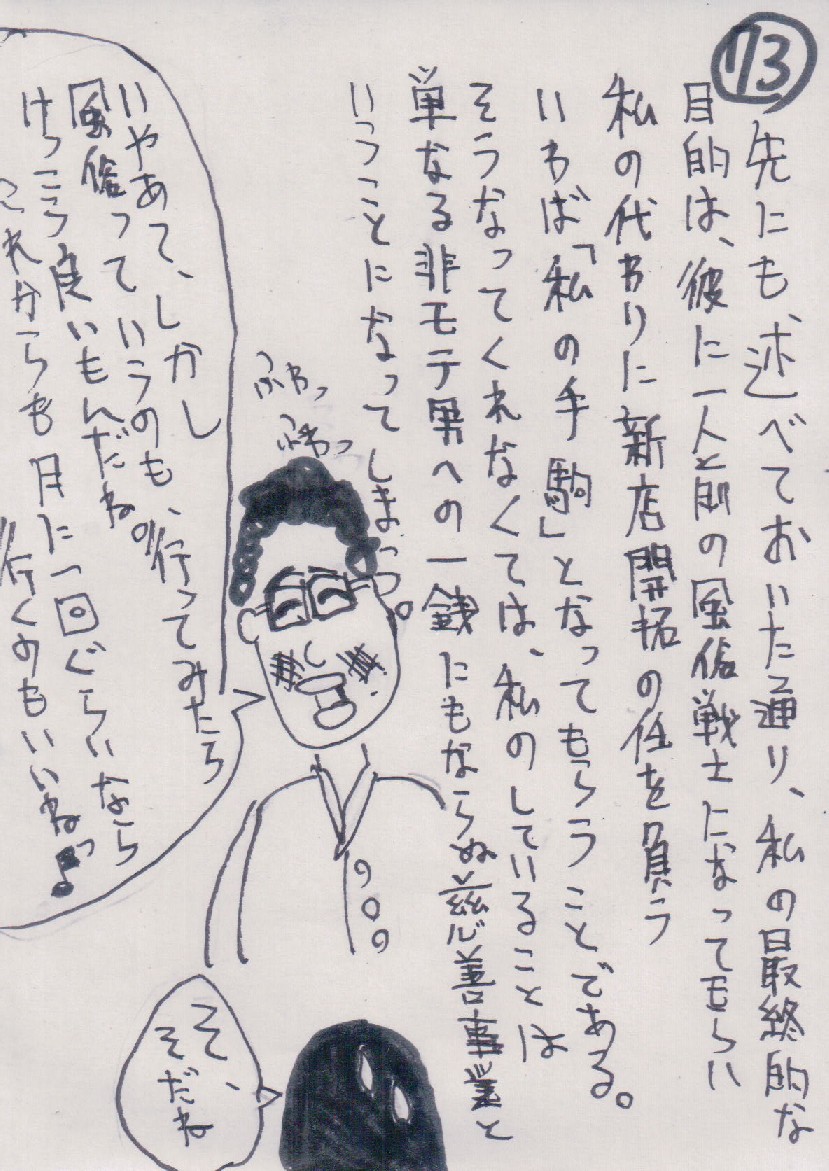 73
先にも、述べておいた通り、私の最終的な
目的は、彼に一人前の風俗戦士になってもらい
私の代わりに新店開拓の任を負う
いわば「私の手駒」となってもらうことである。
そうなってくれなくては、私のしていることは
単なる非モテ男への一銭にもならぬ慈善事業と
いうことになってしまう。
ふわっ
ふわっ
いやあて、しかし
風俗っていうのも、行ってみたら
けっこう良いもんだね。
これからも月に一回ぐらいなら
行くのもいいねっ♪
そ、
そだね